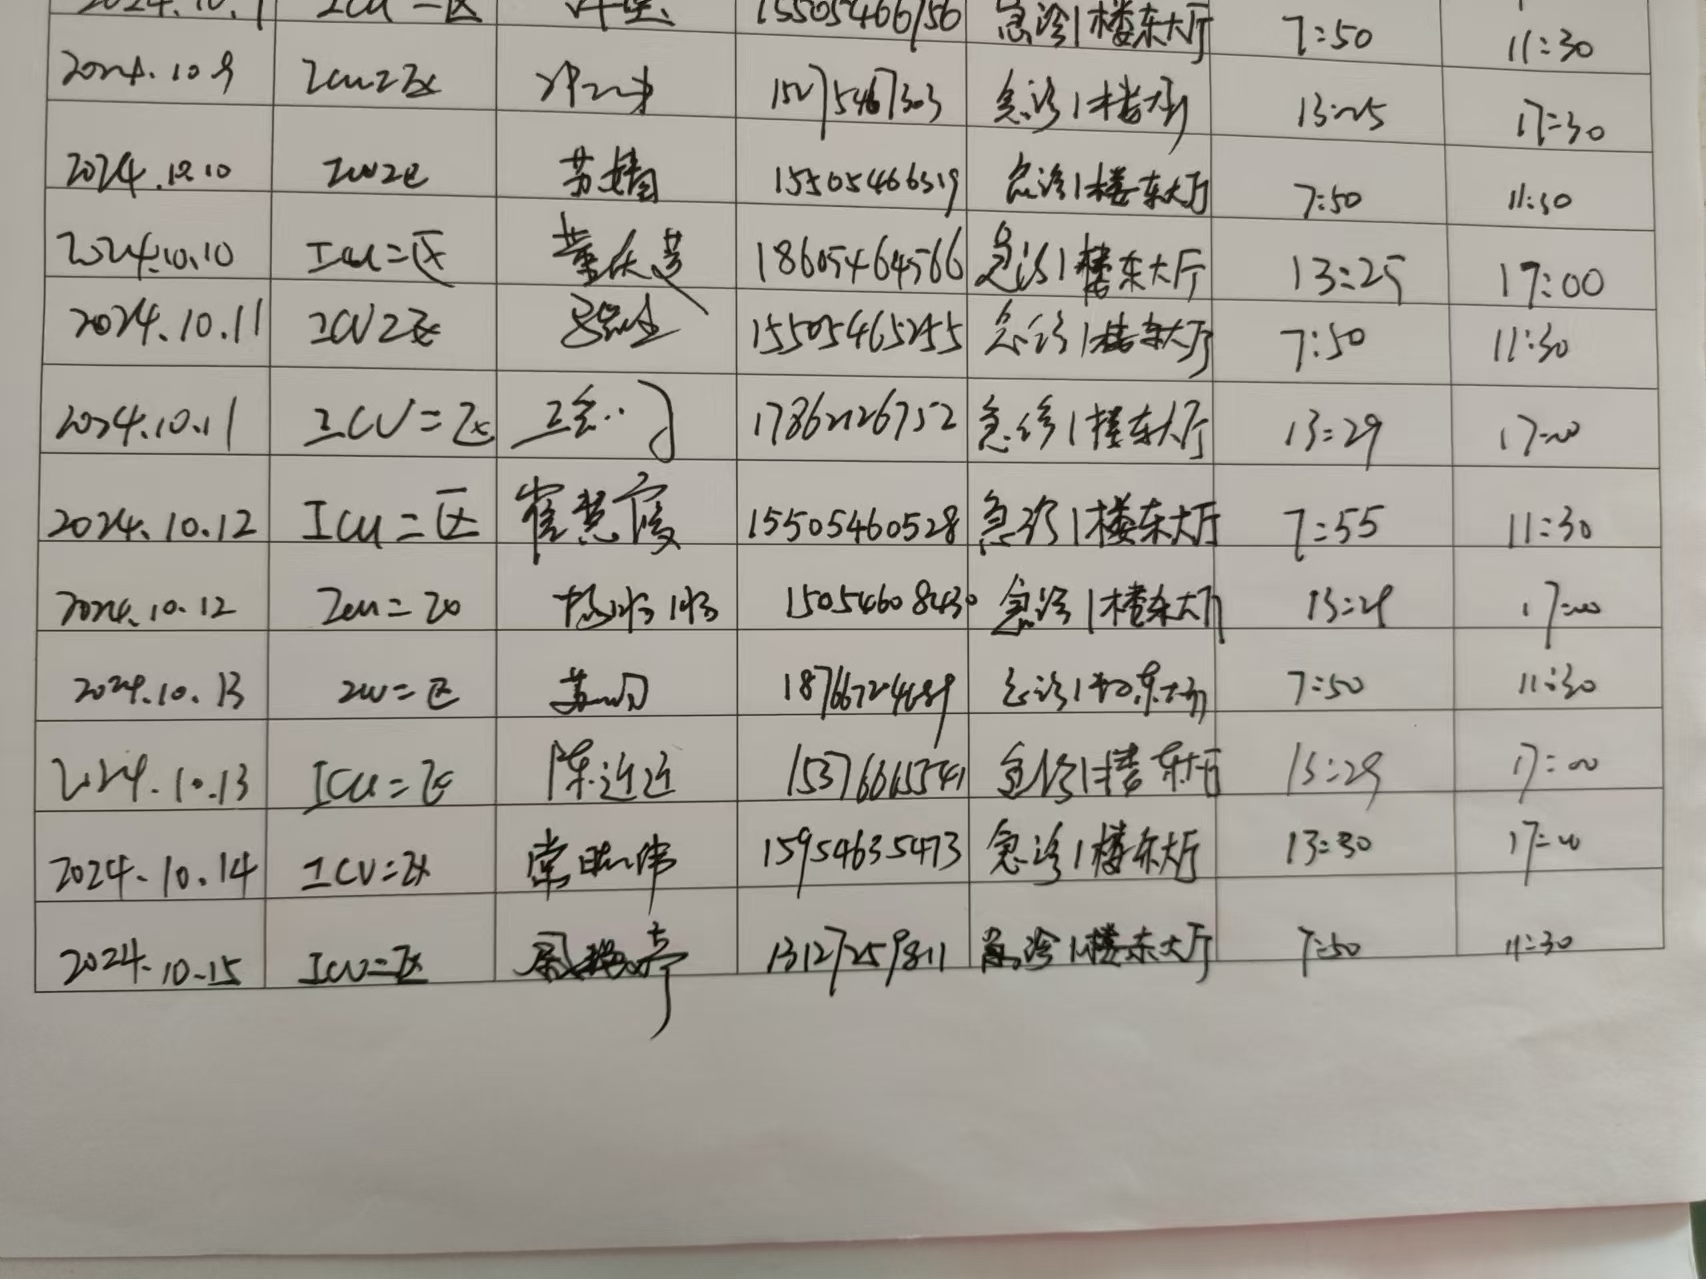 急诊1楼东大厅 7:50 11:30
2024.10.9 ICU二区 急诊1楼大厅 13:25 17:30
2024.10.10 ICU二区 苏婧 15505466519 急诊1楼东大厅 7:50 11:30
2024.10.10 ICU二区 18605464566 急诊1楼东大厅 13:25 17:00
2024.10.11 ICU2区 15505465255 急诊1楼东大厅 7:50 11:30
2024.10.11 ICU二区 17862126752 急诊1楼东大厅 13:29 17:00
2024.10.12 ICU二区 崔慧霞 15505460528 急诊1楼东大厅 7:55 11:30
2024.10.12 ICU二区 杨冰冰 15054608430 急诊1楼东大厅 13:29 17:00
2024.10.13 ICU二区 急诊1楼东大厅 7:50 11:30
2024.10.13 ICU二区 陈近近 急诊1楼东大厅 13:29 17:00
2024.10.14 ICU二区 常晓伟 15954635473 急诊1楼东大厅 13:30 17:00
2024.10.15 ICU二区 13127259811 急诊1楼东大厅 7:50 11:30